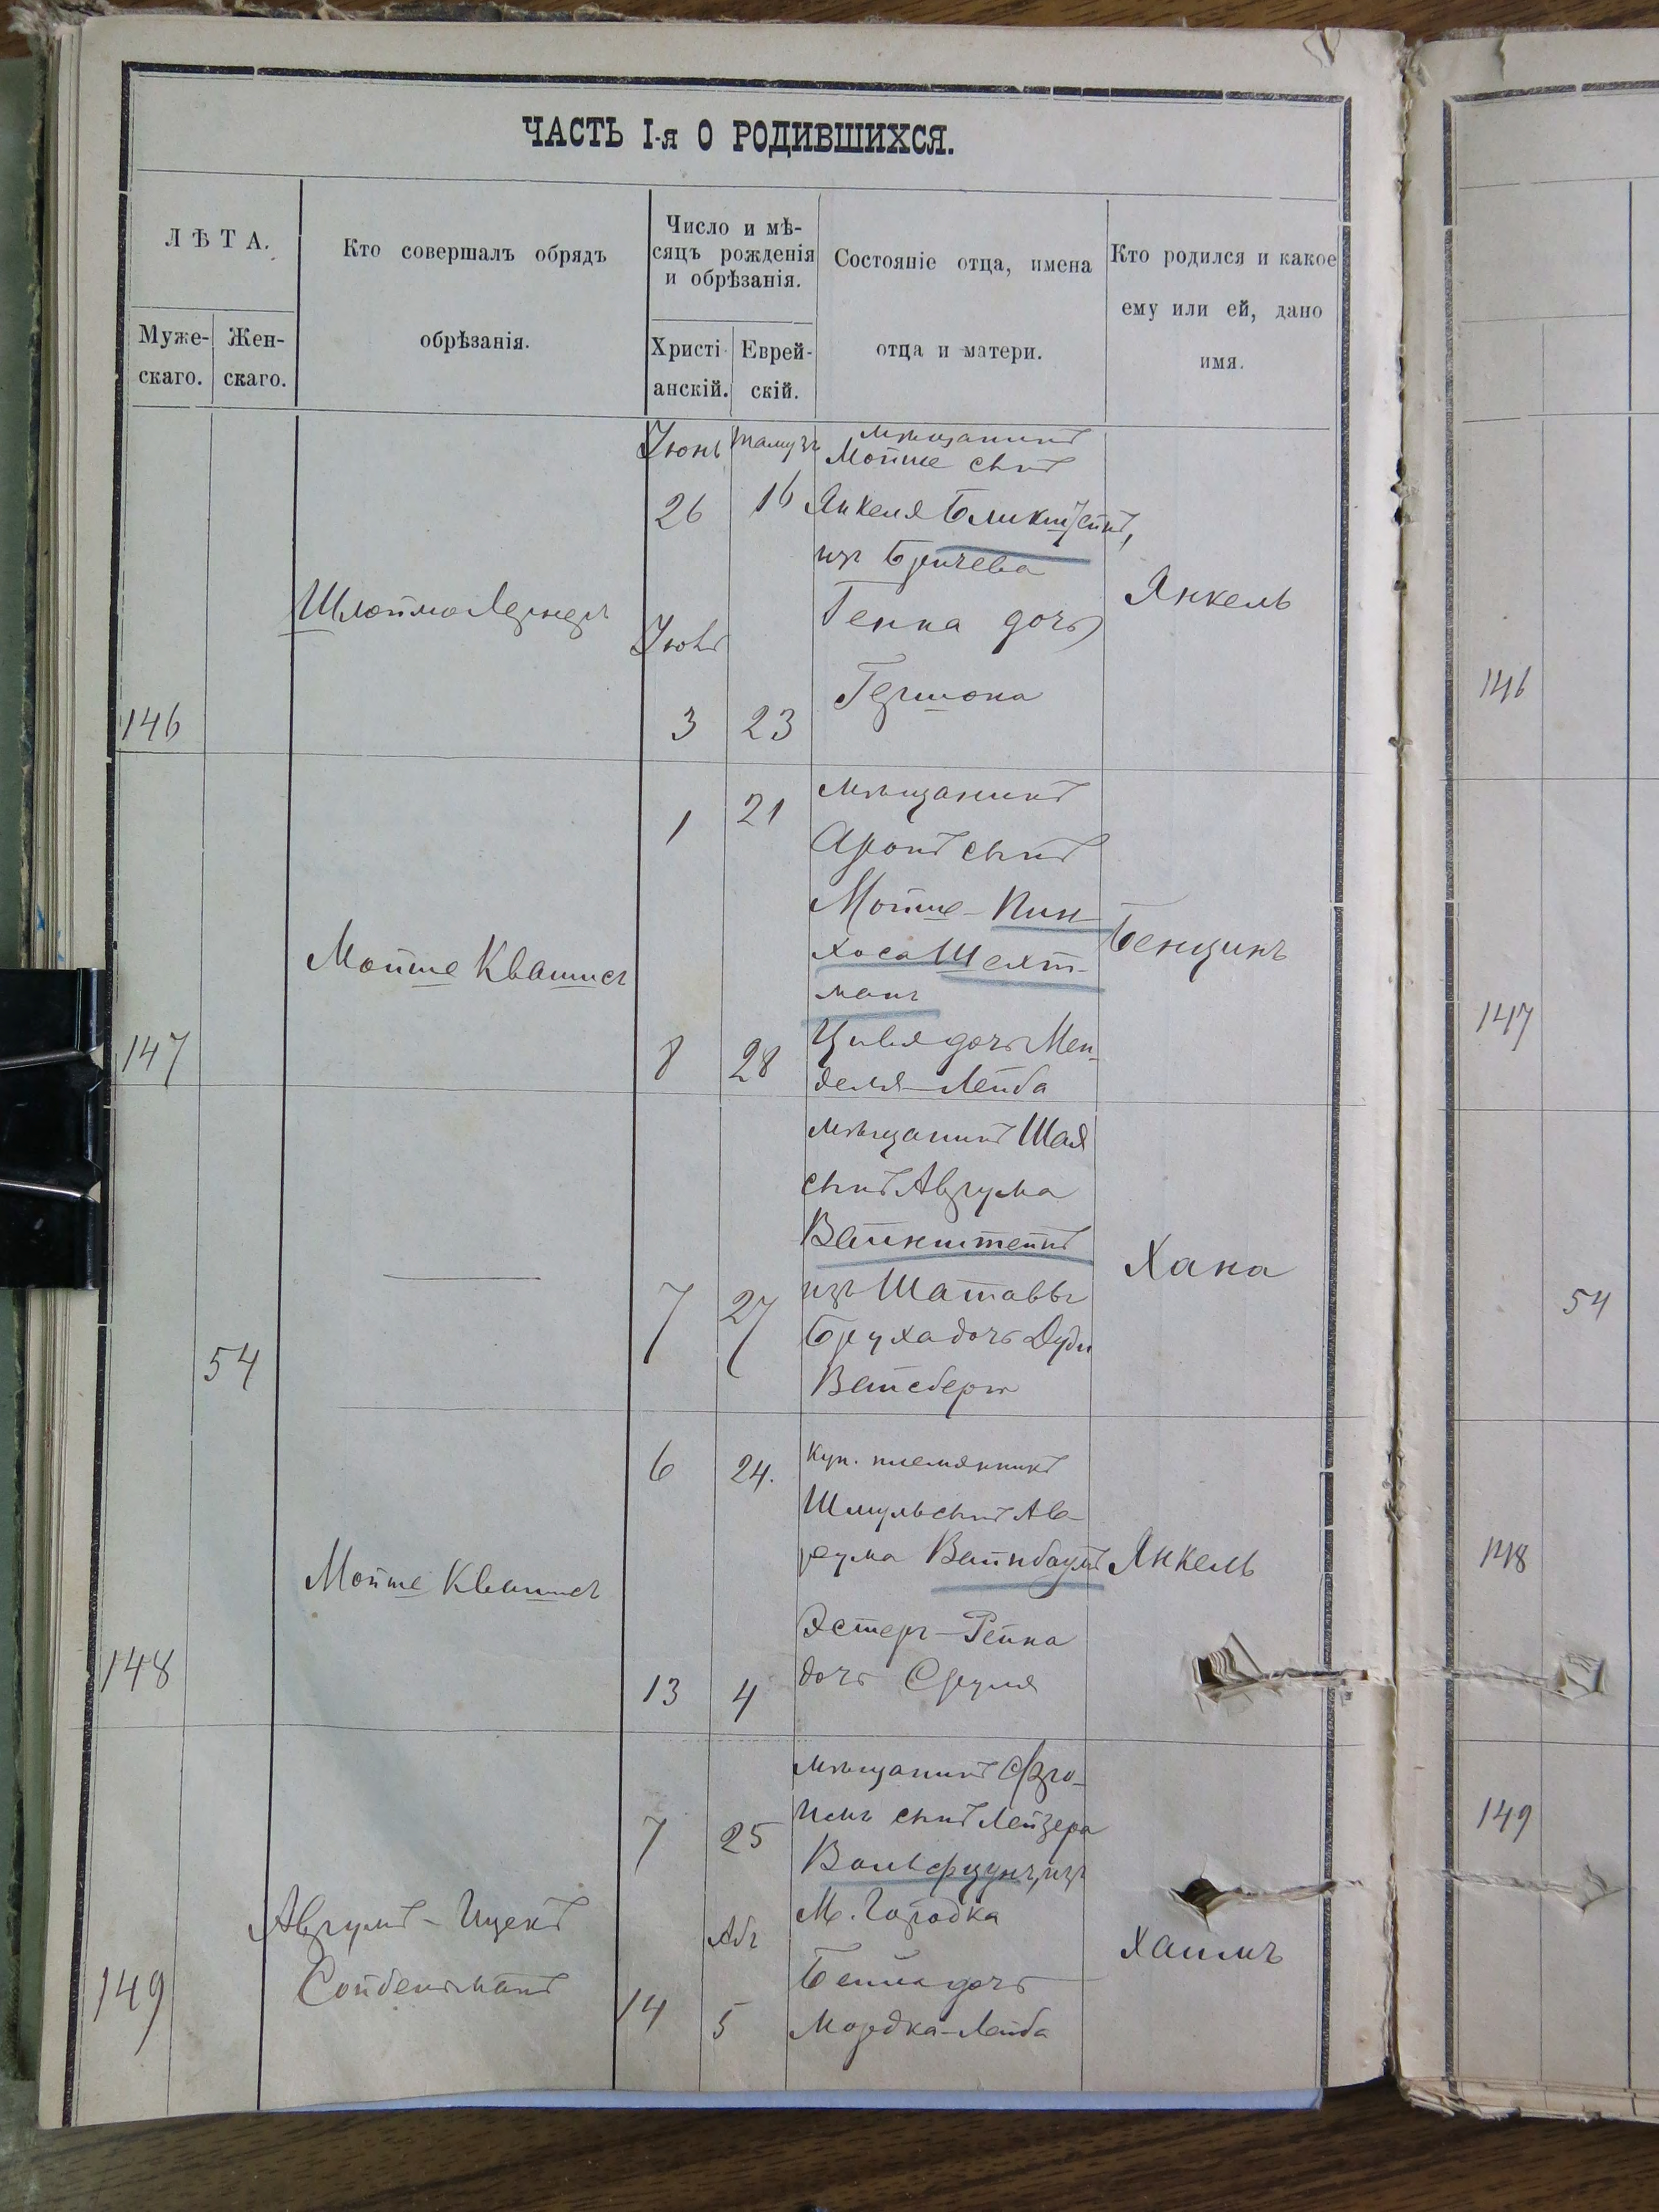 ЧАСТЬ I-я О РОДИВШИХСЯ.
ЛѢТА.
Муже-
скаго.
Жен-
скаго.
Кто совершалъ обрядъ
обрѣзанія.
Число и мѣ-
сяцъ рожденія
и обрѣзанія.
Христі-
анскій.
Еврей-
скій.
Состояніе отца, имена
отца и матери.
Кто родился и какое
ему или ей, дано
имя.
146
Шлойма Лернеръ
Іюнь
26
Іюль
3
Тамузъ
16
23
мѣщанинъ
Мойше сынъ
Янкеля Бликштейнъ,
изъ Бричева
Генна дочь
Гершона
Янкель
146
147
Мойше Квашисъ
1
8
21
28
мѣщанинъ
Аронъ сынъ
Мойше-Пин-
хоса Шехт-
манъ
Цивья дочь Мен-
деля-Лейба
Бенционъ
147
54
7
27
мѣщанинъ Шая
сынъ Аврума
Вайнштейнъ
изъ Шатавы
Бруха дочь Дуди
Вайсберга
Хана
54
148
Мойше Квашисъ
6
13
24.
4
Куп. племянникъ
Шмуль сынъ Ав-
рума Вайнбаумъ
Эстеръ-Рейка
дочь Сруля
Янкель
148
149
Аврумъ-Ицекъ
Сойбельманъ
7
14
25
Абъ
5
мѣщанинъ Фро-
имъ сынъ Лейзера
Вольфцунъ, изъ
М. Городка
Бейла дочь
Мордка-Лейба
Хаимъ
149